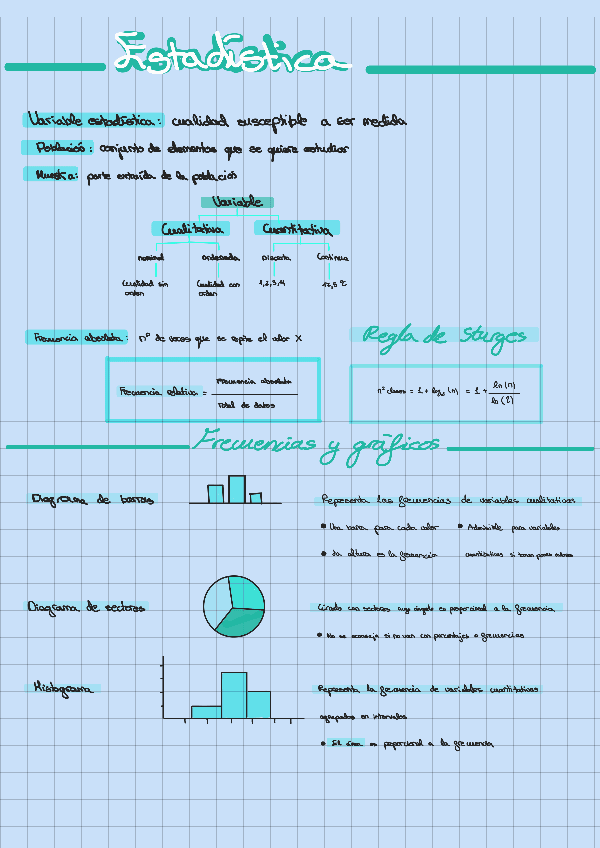 Estadística
Variable estadística: cualidad susceptible a ser medida
Població: conjunto de elementos que se quiere estudiar
Muestra: parte extraída de la població
Variable
Cualitativa Cuantitativa
nominal ordenada Discreta Continua
Cualidad sin orden
Cualidad con orden
1,2,3,4
Frecuencia absoluta: nº de veces que se repite el valor X
Regla de Sturges
Frecuencia relativa = Frecuencia absoluta / Total de datos
nº clases = 1 + log₂ (n) = 1 + ln(n) / ln(2)
Frecuencias y gráficos
Diagrama de barras
Representa las frecuencias de variables cualitativas
• Una barra para cada valor
• La altura es la frecuencia
• Admisible para variables
cuantitativas si toman pocos valores
Diagrama de sectores
Círculo con sectores cuyo ángulo es proporcional a la frecuencia
• No se aconseja si no van con porcentajes o frecuencias
Histograma
Representa la frecuencia de variables cuantitativas
agrupadas en intervalos
• El área es proporcional a la frecuencia